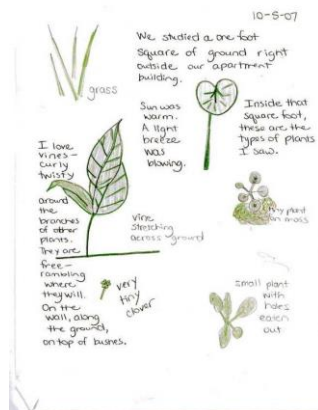 10-5-07
We studied a one foot
square of ground right
outside our apartment
building.
grass
Sun was
warm.
A light
breeze
was
blowing.
Inside that
square foot,
these are the
types of plants
I saw.
I love
vines-
curly
twisty
around
the
branches
of other
plants.
They are
free-
rambling
where
they will.
On the
wall, along
the ground,
on top of bushes.
vine
stretching
across ground
tiny plant
on moss
very
tiny
clover
small plant
with
holes
eaten
out